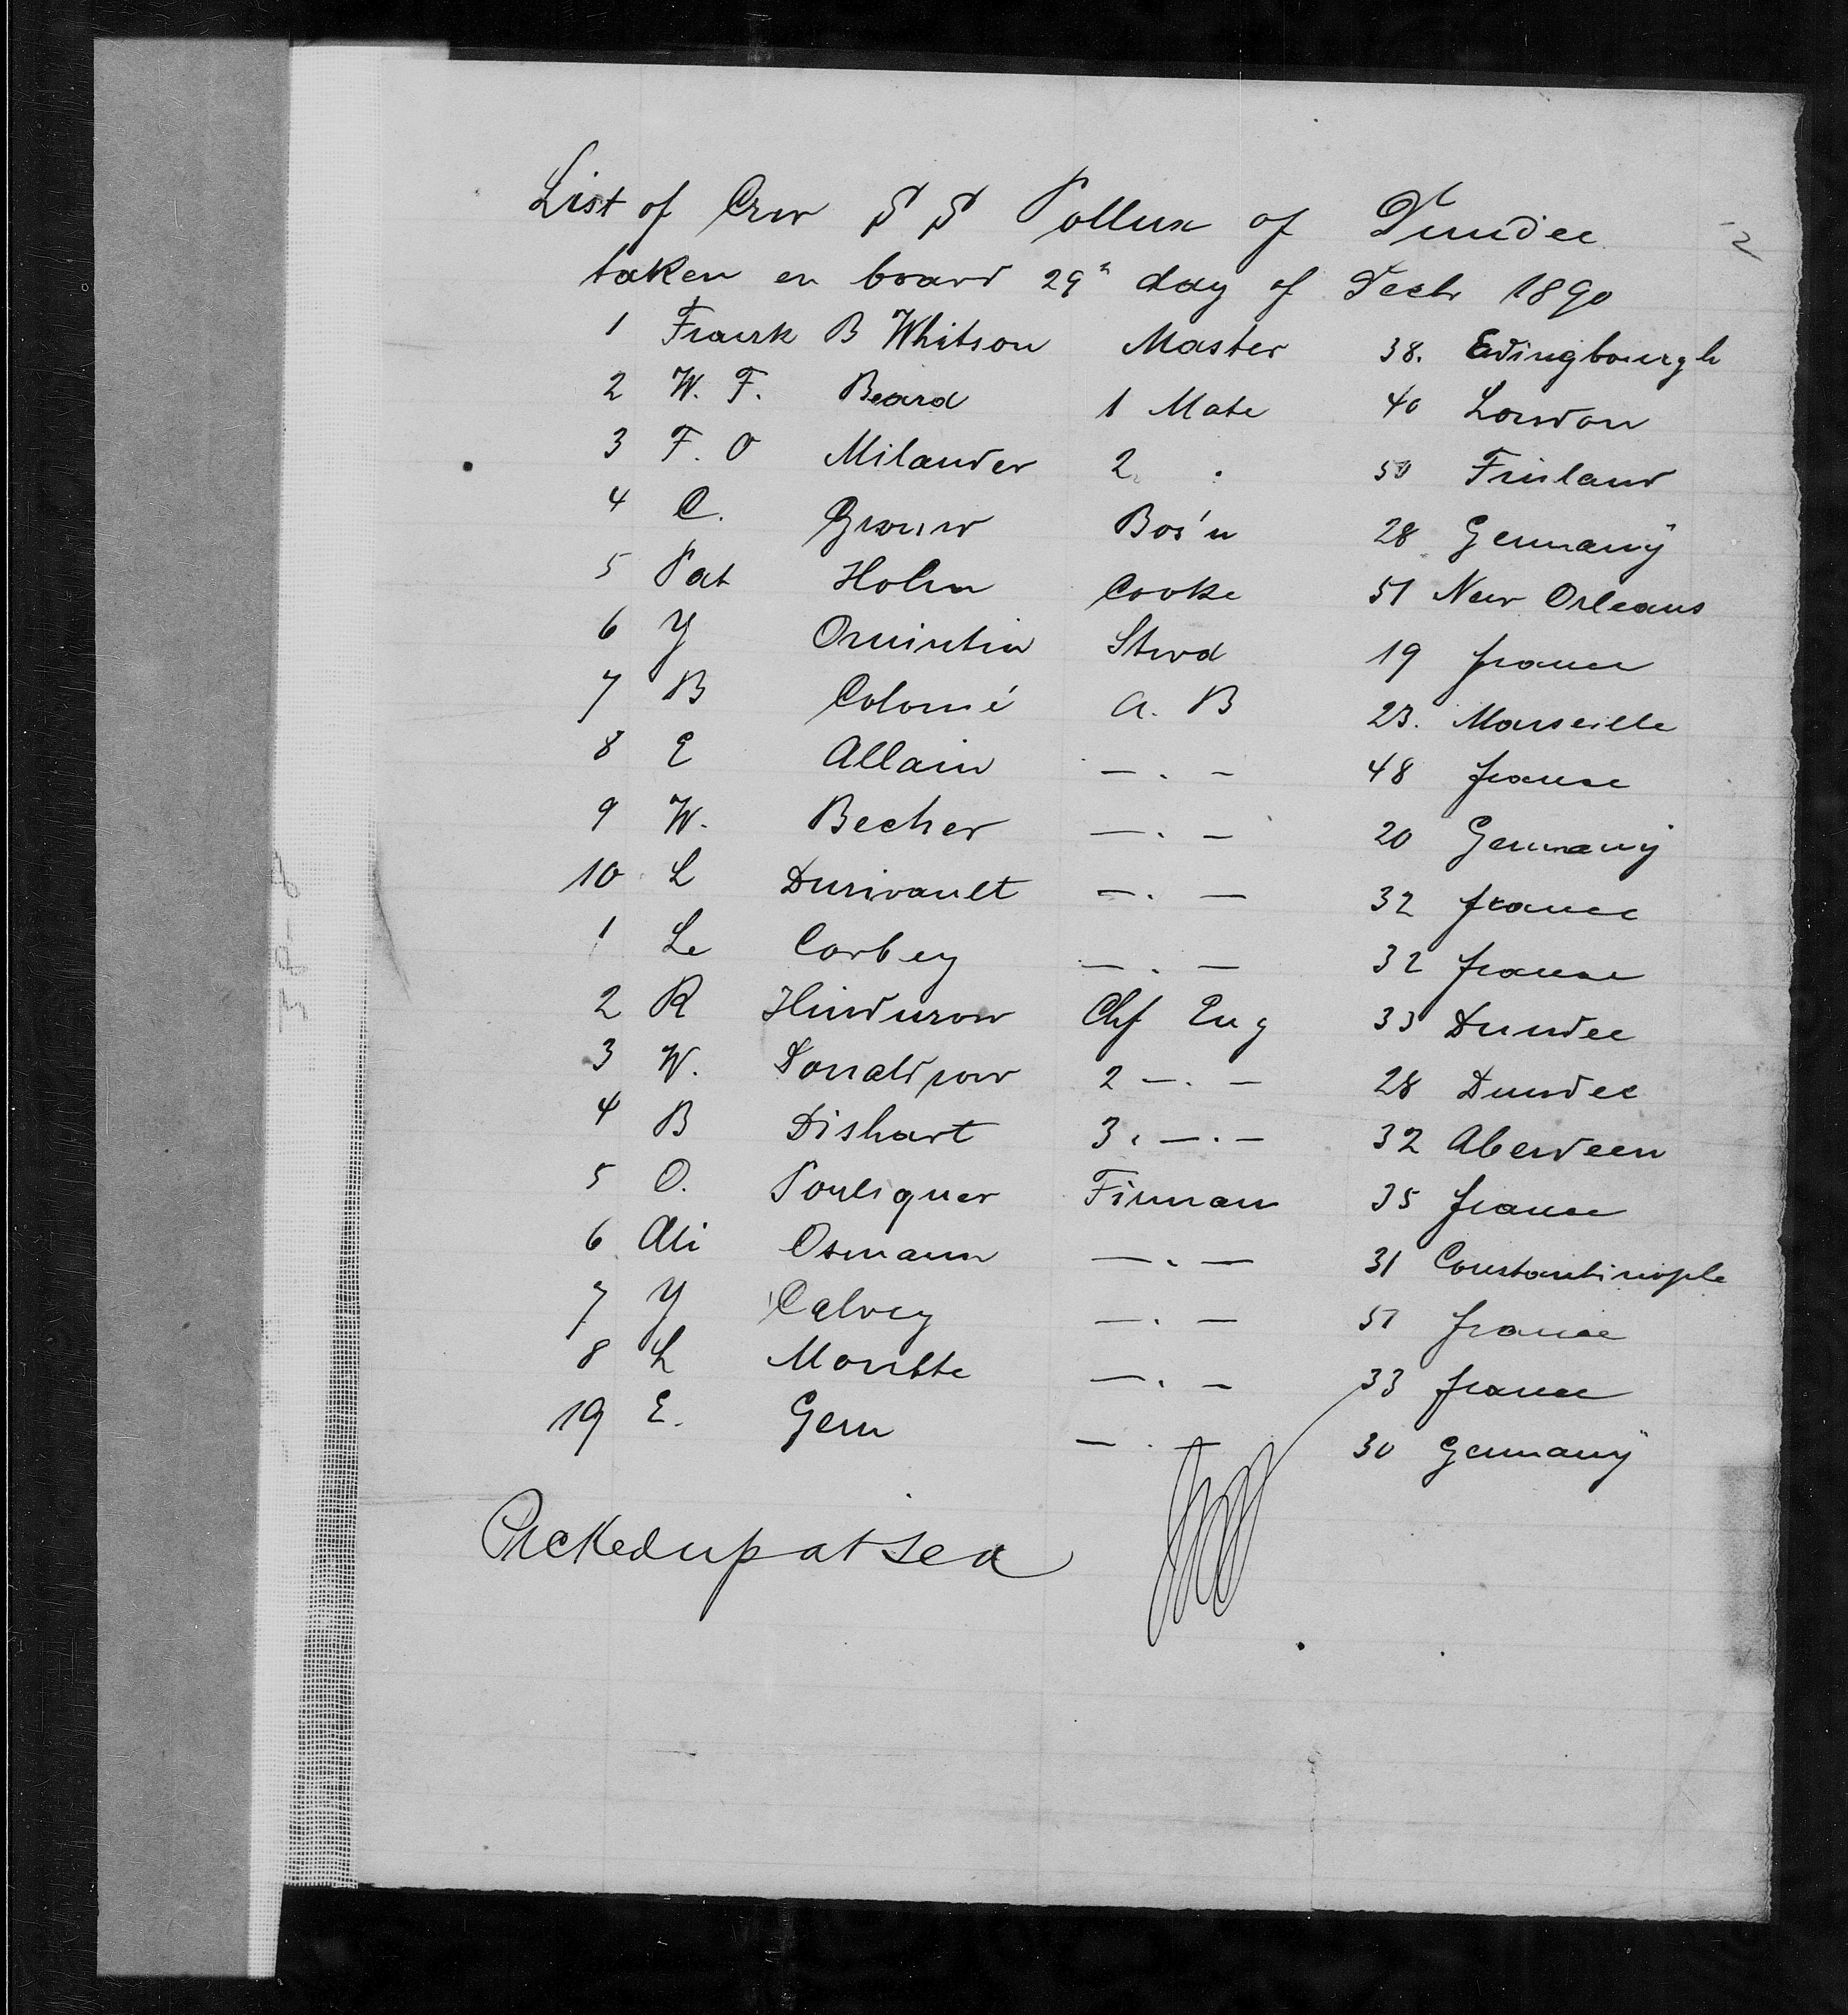 List of Crew S S Pollux of Dundee
taken on board 29th day of Decbr 1890
1 Frank B Whitson Master 38. Edingbourgh
2 W. F. Beard 1 Mate 40 London
3 F. O Milander 2 . 50 Finland
4 C. Bos'n 28 Germany
5 Pat Holm Cooke 51 New Orleans
6 Y Stwd 19 france
7 B Colomé A. B 23. Marseille
8 E Allain — . — 48 france
9 W. Becher — . — 20 Germany
10 L Durivault — . — 32 france
1 Le Corbey — . — 32 france
2 R Chf Eng 33 Dundee
3 W. Donaldson 2 — . — 28 Dundee
4 B Dishart 3 . — . — 32 Aberdeen
5 O. Pouliquer Firman 35 france
6 Ali Osmann — . — 31 Constantinople
7 Y Calvey — . — 51 france
8 L — . — 33 france
19 E. Gern — . — 30 Germany
Picked up at sea